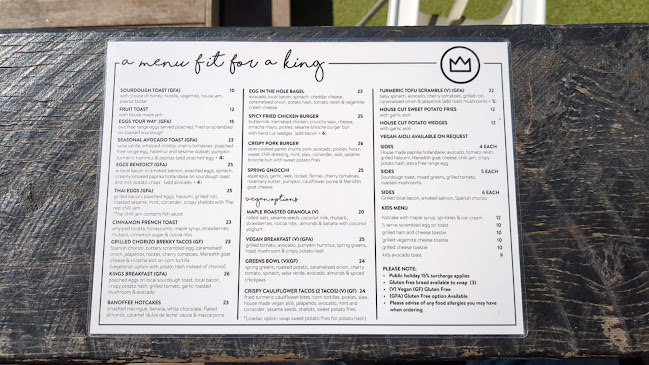 a menu fit for a king
SOURDOUGH TOAST (GFA) 10
with choice of honey, nutella, vegemite, house jam,
peanut butter
FRUIT TOAST 12
with house made jam
EGGS YOUR WAY (GFA) 15
two free range eggs served poached, fried or scrambled
on toasted sourdough
SEASONAL AVOCADO TOAST (GFA) 24
whipped ricotta, cherry tomatoes, poached
free range egg, hazelnut and sesame dukkah, pumpkin
turmeric hummus & pepitas (add poached egg + 4)
EGGS BENEDICT (GFA) 25
w local bacon or smoked salmon, poached eggs, spinach,
creamy smoked paprika hollandaise on sourdough toast
and mini potato crisps (add avocado + 4)
THAI EGGS (GFA) 25
grilled bacon, poached eggs, hatoumi, grilled roti,
roasted sesame, mint, coriander, crispy shallots with Thai
red chilli jam
*Thai chili jam contains fish sauce
CINNAMON FRENCH TOAST 23
whipped ricotta, honeycomb, maple syrup, strawberries,
rhubarb, cinnamon sugar & cocoa nibs
GRILLED CHORIZO BREKKY TACOS (GF) 23
Spanish chorizo, buttery scrambled egg, caramelised
onion, jalapenos, rocket, cherry tomatoes, Meredith goat
cheese & sriracha aioli on corn tortilla
(vegetarian option with potato hash instead of chorizo)
KINGS BREAKFAST (GFA) 26
poached eggs on local sourdough toast, local bacon,
crispy potato hash, grilled tomato, garlic roasted
mushroom & avocado
BANOFFEE HOTCAKES 23
smashed meringue, banana, white chocolate, flaked
almonds, caramel 'dulce de leche' sauce & mascarpone
EGG IN THE HOLE BAGEL 23
avocado, local bacon, spinach, cheddar cheese,
caramelised onion, potato hash, tomato relish & vegemite
cream cheese
SPICY FRIED CHICKEN BURGER 25
buttermilk marinated chicken, crunchy slaw, cheese,
sriracha mayo, pickles, sesame brioche burger bun
with hand cut wedges (add bacon + 6)
CRISPY PORK BURGER 26
slow cooked panko crumb pork, avocado, pickles, hoisin
sweet chili dressing, mint, slaw, coriander, aioli, sesame
brioche bun with sweet potato fries
SPRING GNOCCHI 25
asparagus, garlic, leek, rocket, fennel, cherry tomatoes,
rosemary butter, pumpkin, cauliflower puree & Meredith
goat cheese
vegan options
MAPLE ROASTED GRANOLA (V) 20
rolled oats, sesame seeds, coconut milk, rhubarb,
strawberries, cocoa nibs, almonds & banana with coconut
yoghurt
VEGAN BREAKFAST (V) (GFA) 25
grilled tomato, avocado, pumpkin hummus, spring greens,
roast mushroom & crispy potato hash
GREENS BOWL (V)(GF) 24
spring greens, roasted potato, caramelised onion, cherry
tomato, spinach, salsa verde, avocado, almonds & spiced
chickpeas
CRISPY CAULIFLOWER TACOS (2 TACOS) (V) (GF) 24
fried turmeric cauliflower bites, corn tortillas, pickles, slaw,
house made vegan aioli, jalapenos, avocado, mint and
coriander, sesame seeds, shallots, sweet potato fries
*(coeliac option swap sweet potato fries for potato hash)
TURMERIC TOFU SCRAMBLE (V) (GFA) 22
baby spinach, avocado, cherry tomatoes, grilled roti,
caramelised onion & jalapenos (add roast mushrooms + 5)
HOUSE CUT SWEET POTATO FRIES 12
with garlic aioli
HOUSE CUT POTATO WEDGES 12
with garlic aioli
VEGAN AIOLI AVAILABLE ON REQUEST
SIDES 4 EACH
House made paprika hollandaise, avocado, tomato relish,
grilled haloumi, Meredith goat cheese, chilli jam, crispy
potato hash, extra free range egg
SIDES 5 EACH
Sourdough toast, mixed greens, grilled tomato,
roasted mushrooms
SIDES 6 EACH
Grilled local bacon, smoked salmon, Spanish chorizo
KIDS MENU
hotcake with maple syrup, sprinkles & ice cream 12
½ serve scrambled egg on toast 10
grilled ham and cheese toastie 10
grilled vegemite cheese toastie 10
grilled cheese toastie 10
kids avocado toast 9
PLEASE NOTE:
• Public holiday 15% surcharge applies
• Gluten free bread available to swap (3)
• (V) Vegan (GF) Gluten Free
• (GFA) Gluten Free option Available
• Please advise of any food allergies you may have
when ordering